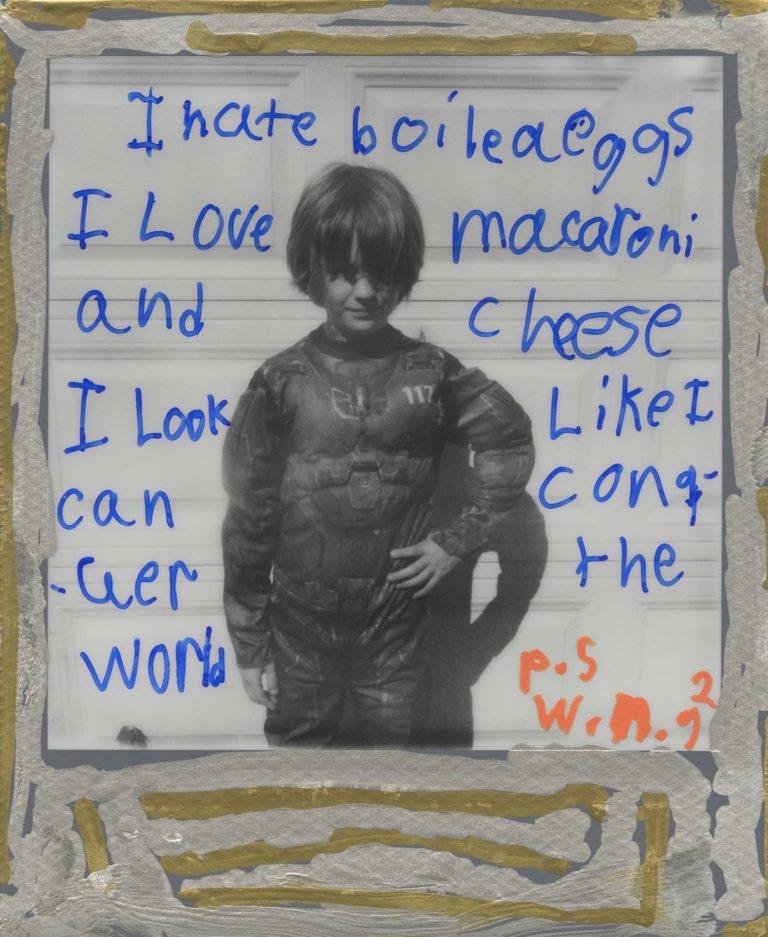 I hate boiled eggs
I Love macaroni
and cheese
I Look Like I
can conq-
-uer the
world
117
p.s
W.n.g²